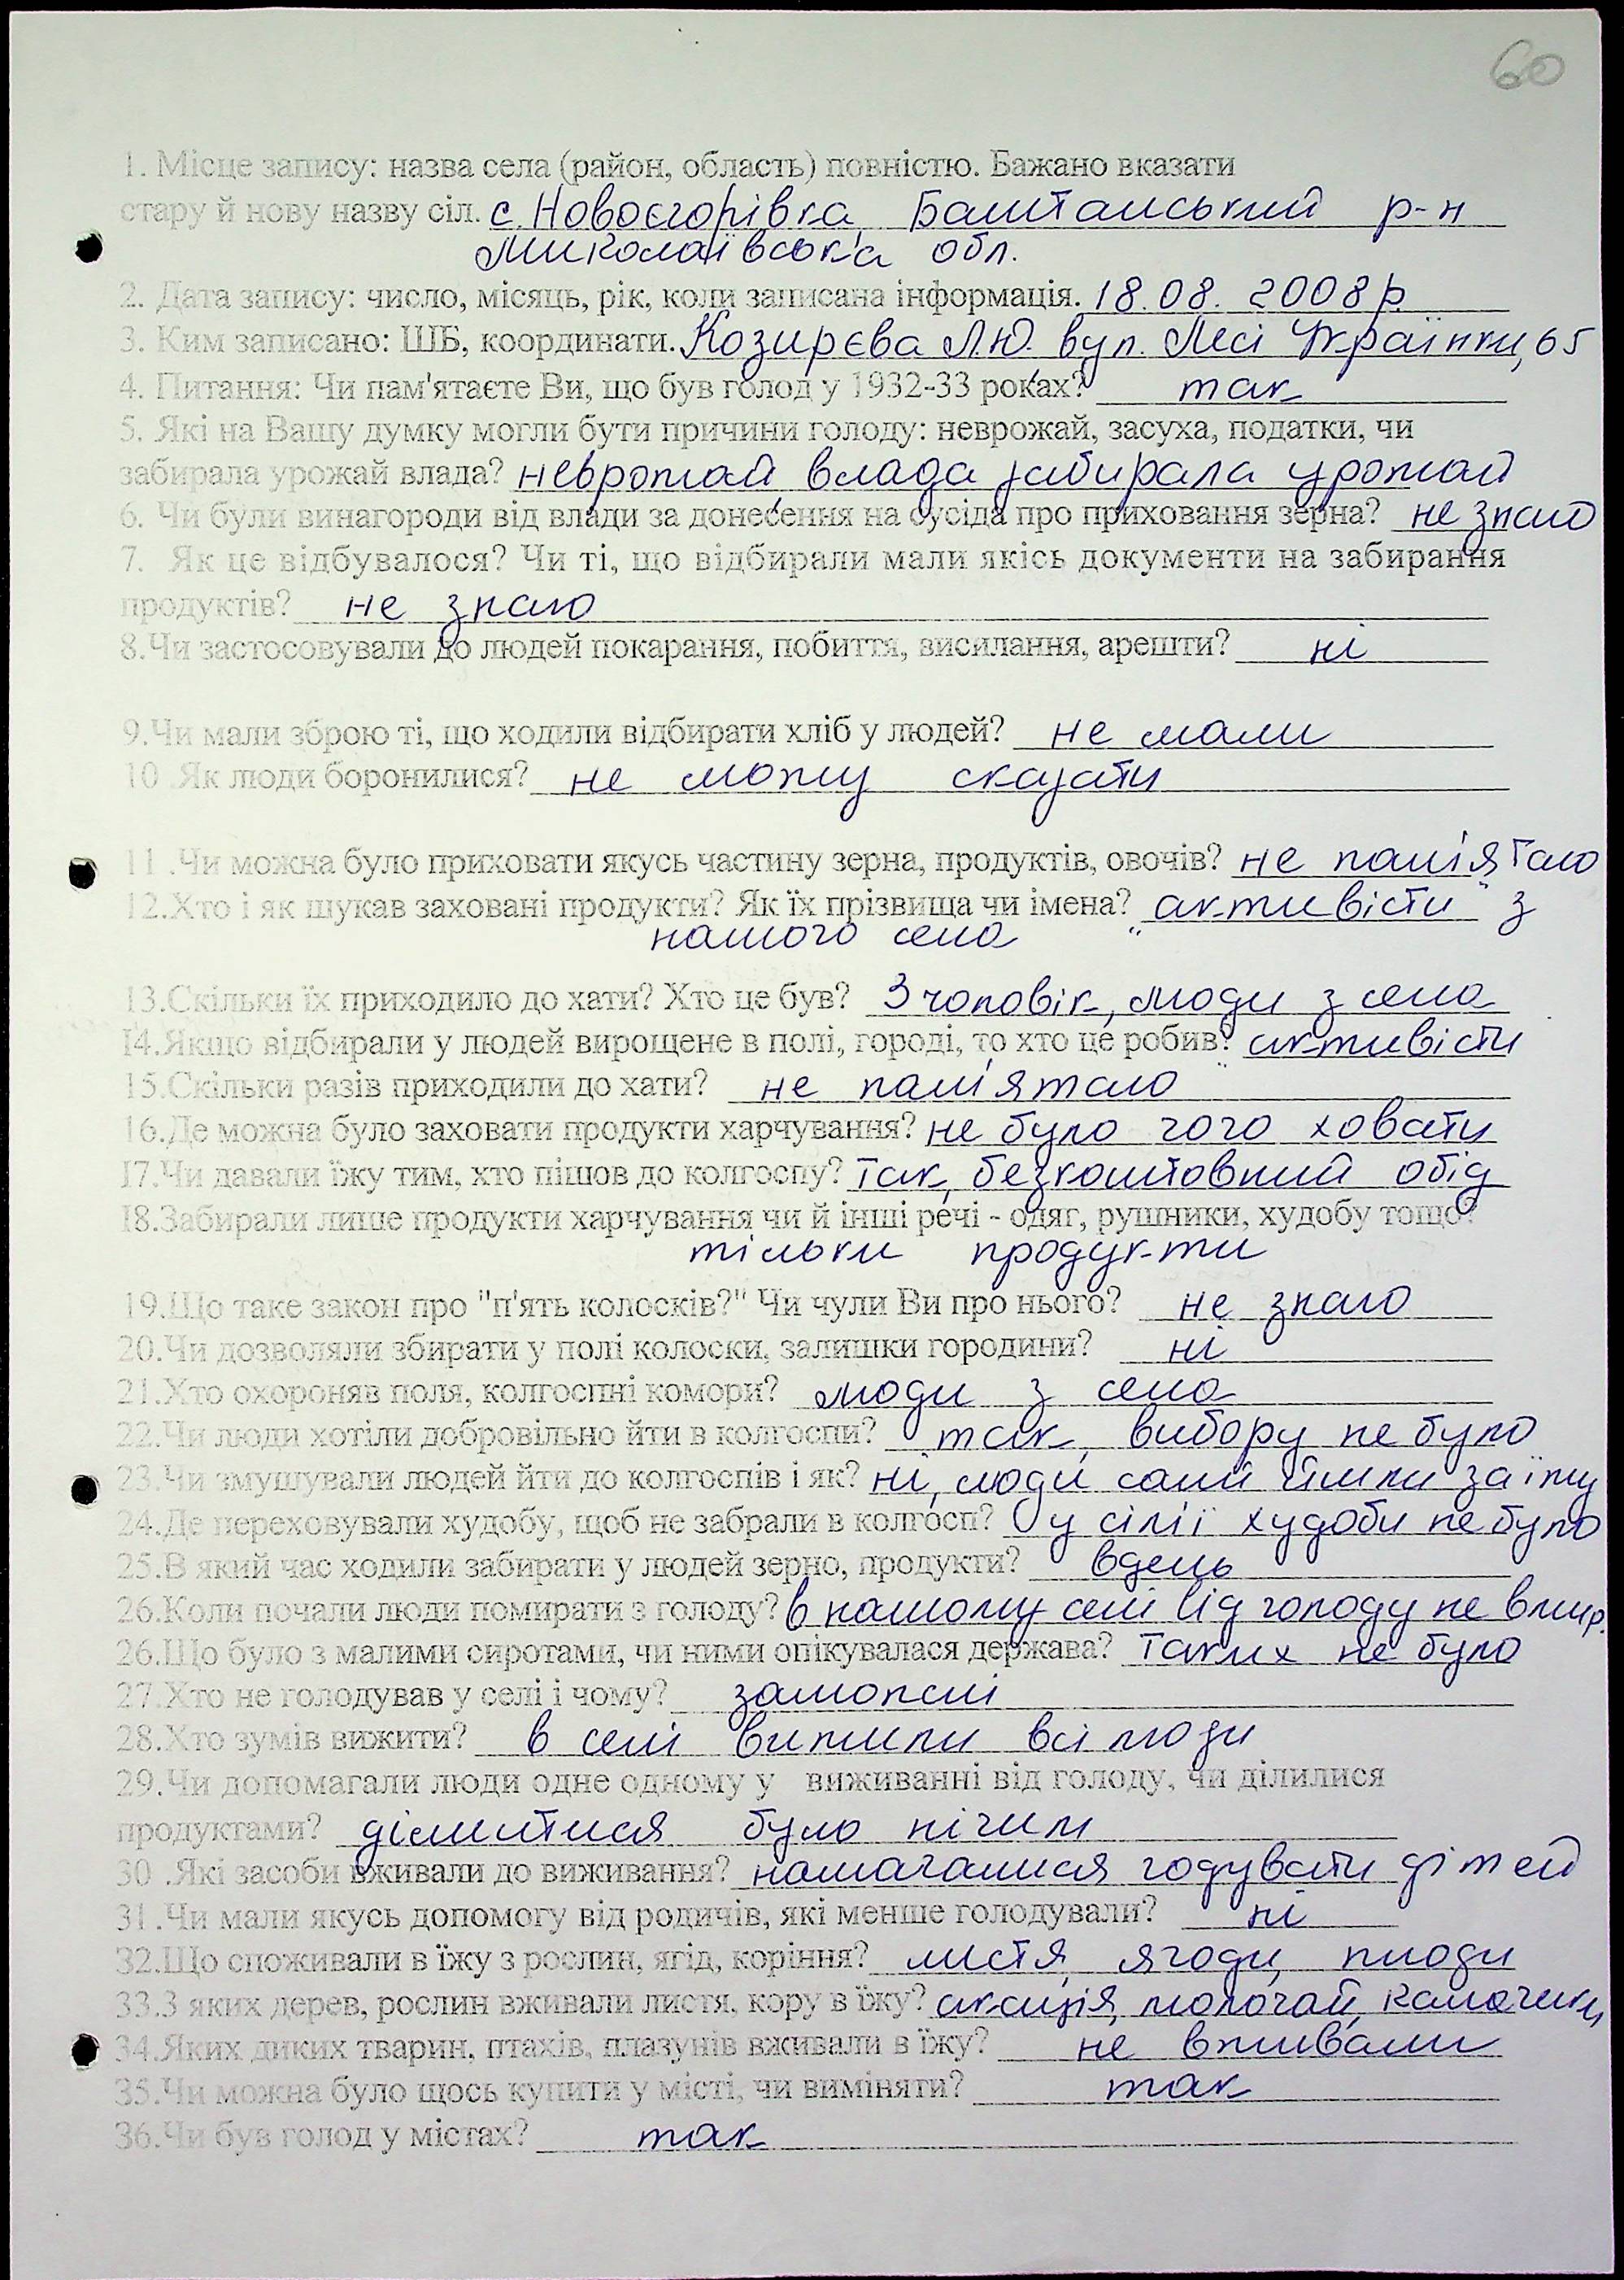 60
1. Місце запису: назва села (район, область) повністю. Бажано вказати
стару й нову назву сіл. с. Новоєгорівка, Баштанський р-н
Миколаївська обл.
2. Дата запису: число, місяць, рік, коли записана інформація. 18.08. 2008 р.
3. Ким записано: ШБ, координати. Козирєва Л.Ю. вул. Лесі Українки, 65
4. Питання: Чи пам'ятаєте Ви, що був голод у 1932-33 роках? так
5. Які на Вашу думку могли бути причини голоду: неврожай, засуха, податки, чи
забирала урожай влада? неврожай, влада забирала урожай
6. Чи були винагороди від влади за донесення на сусіда про приховання зерна? не знаю
7. Як це відбувалося? Чи ті, що відбирали мали якісь документи на забирання
продуктів? не знаю
8.Чи застосовували до людей покарання, побиття, висилання, арешти? ні
9.Чи мали зброю ті, що ходили відбирати хліб у людей? не мали
10 .Як люди боронилися? не можу сказати
11 .Чи можна було приховати якусь частину зерна, продуктів, овочів? не пам'ятаю
12.Хто і як шукав заховані продукти? Як їх прізвища чи імена? „активісти" з
нашого села
13.Скільки їх приходило до хати? Хто це був? 3 чоловік, люди з села
14.Якщо відбирали у людей вирощене в полі, городі, то хто це робив? активісти
15.Скільки разів приходили до хати? не пам'ятаю
16.Де можна було заховати продукти харчування? не було чого ховати
17.Чи давали їжу тим, хто пішов до колгоспу? Так, безкоштовний обід
18.Забирали лише продукти харчування чи й інші речі - одяг, рушники, худобу тощо?
тільки продукти
19.Що таке закон про "п'ять колосків?" Чи чули Ви про нього? не знаю
20.Чи дозволяли збирати у полі колоски, залишки городини? ні
21.Хто охороняв поля, колгоспні комори? люди з села
22.Чи люди хотіли добровільно йти в колгоспи? так, вибору не було
23.Чи змушували людей йти до колгоспів і як? ні, люди самі йшли за їжу
24.Де переховували худобу, щоб не забрали в колгосп? у сім'ї худоби не було
25.В який час ходили забирати у людей зерно, продукти? вдень
26.Коли почали люди помирати з голоду? в нашому селі від голоду не вмир.
26.Що було з малими сиротами, чи ними опікувалася держава? Таких не було
27.Хто не голодував у селі і чому? заможні
28.Хто зумів вижити? в селі вижили всі люди
29.Чи допомагали люди одне одному у виживанні від голоду, чи ділилися
продуктами? ділитися було нічим
30 .Які засоби вживали до виживання? намагалися годувати дітей
31 .Чи мали якусь допомогу від родичів, які менше голодували? ні
32.Що споживали в їжу з рослин, ягід, коріння? листя, ягоди, плоди
33.З яких дерев, рослин вживали листя, кору в їжу? акація, молочай, калачики
34.Яких диких тварин, птахів, плазунів вживали в їжу? не вживали
35.Чи можна було щось купити у місті, чи виміняти? так
36.Чи був голод у містах? так